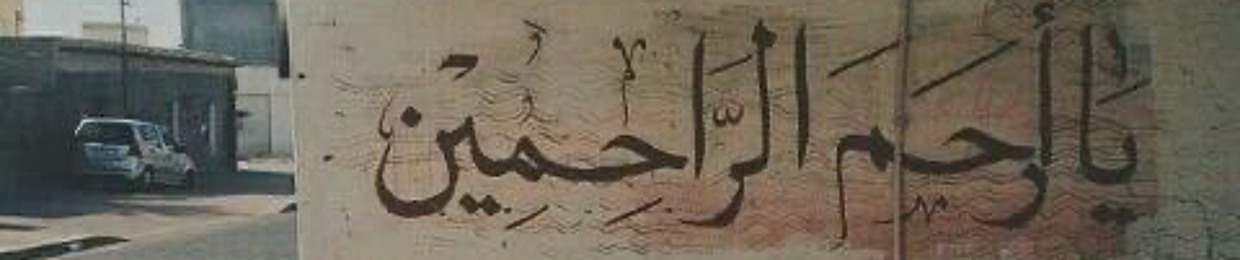 يَا أَرحَمَ الرَّاحِمِينْ